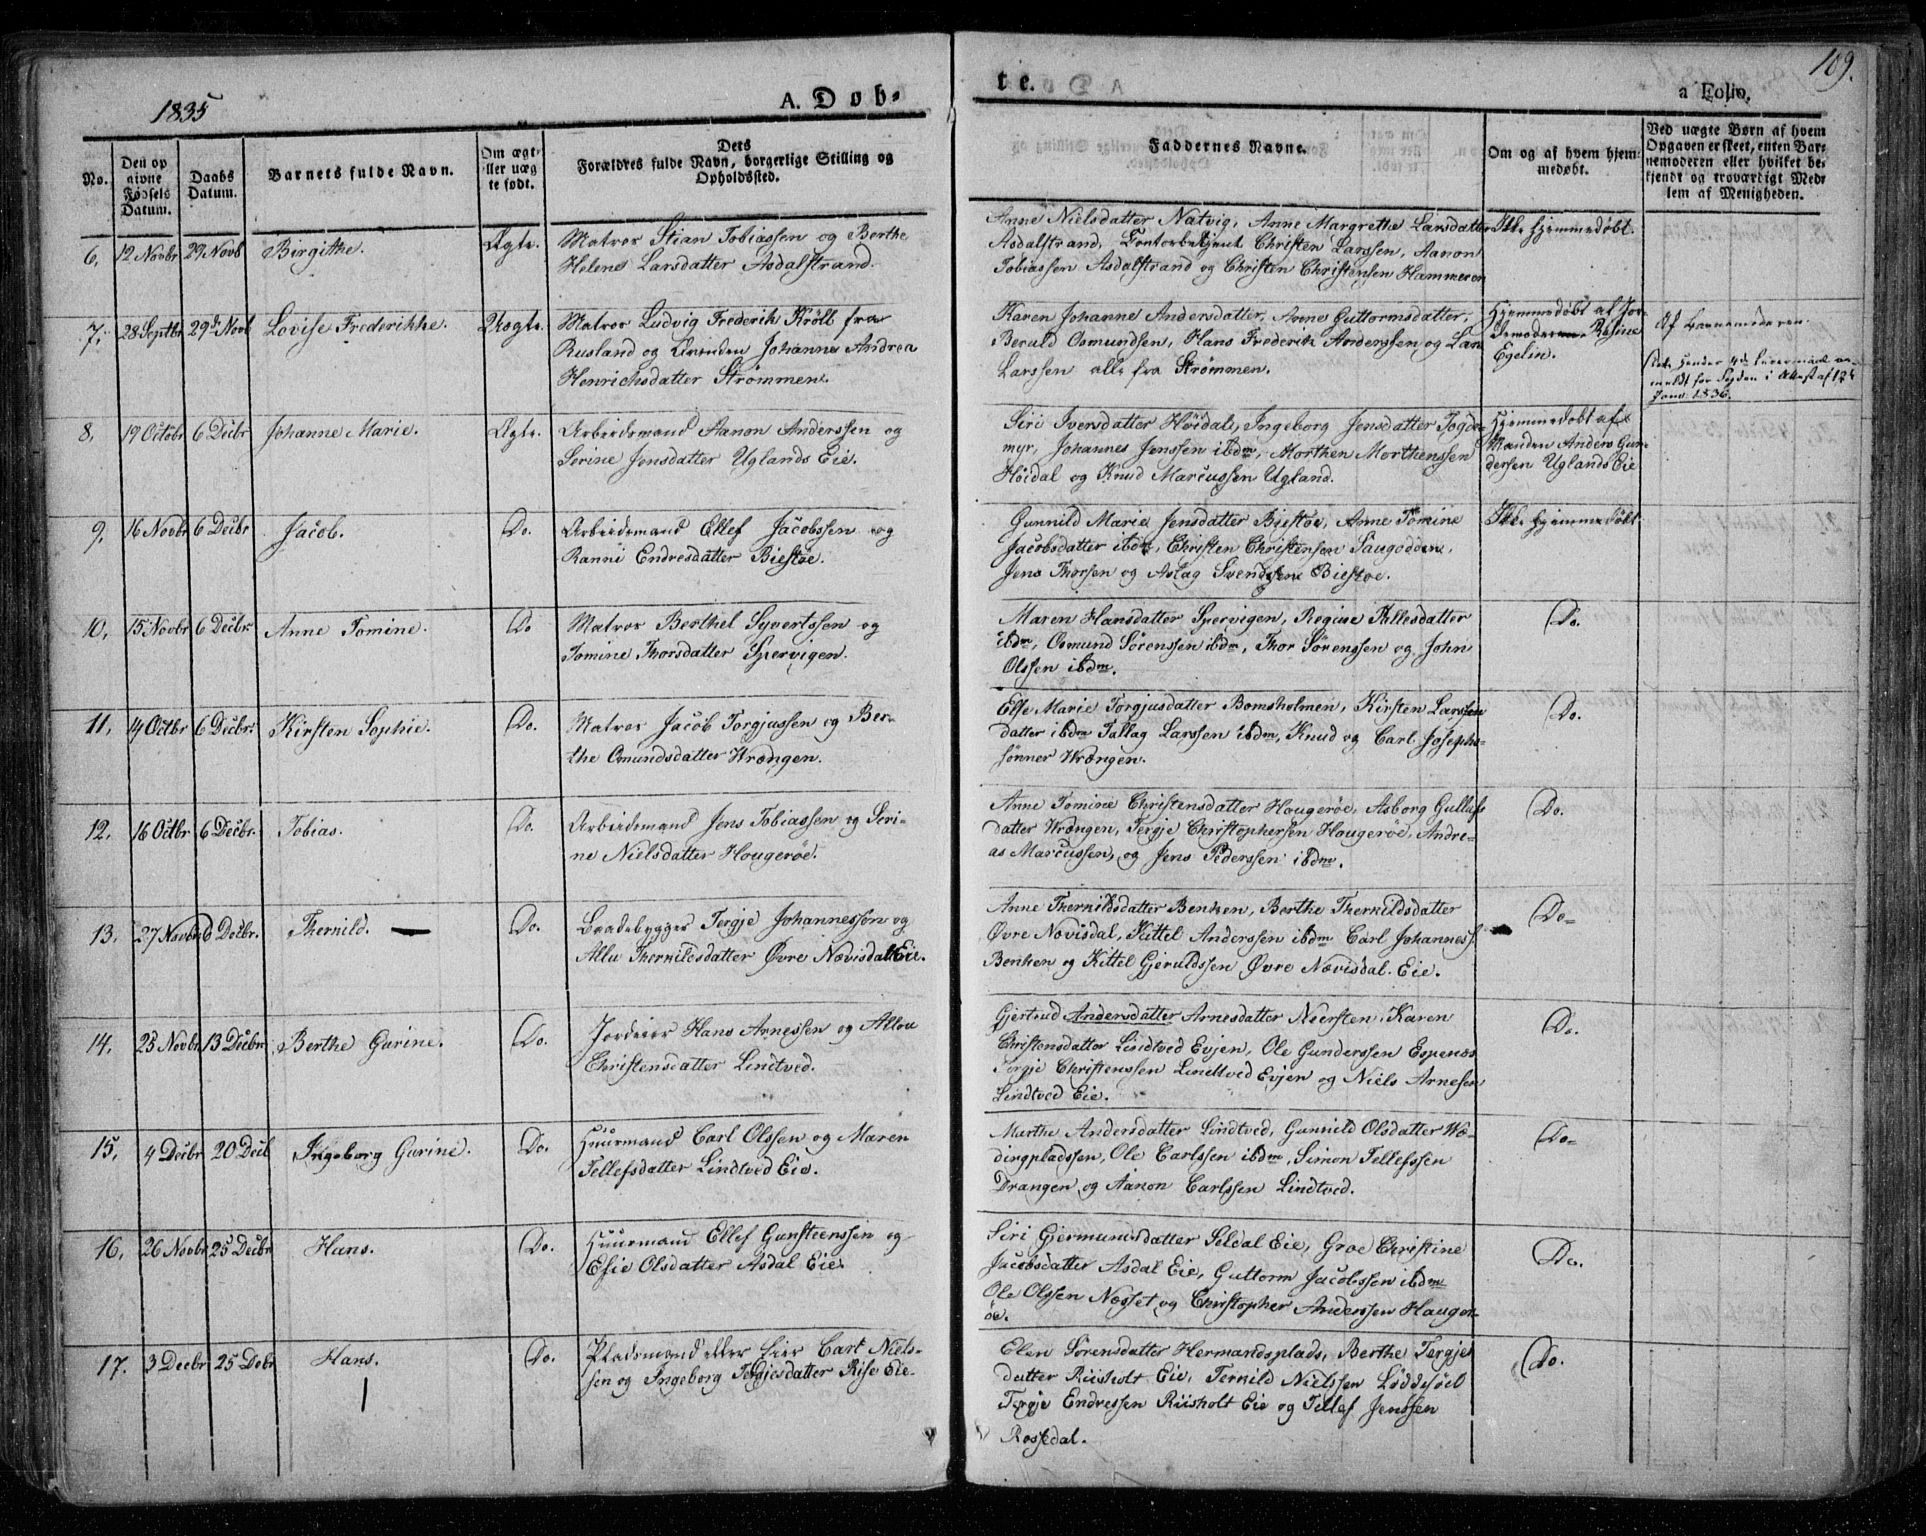 1835
A. Døb-
te.
109.
a Folio.
No.
Den op
givne
Fødsels
Datum.
Daabs
Datum.
Barnets fulde Navn.
Om ægt-
eller uæg
te født.
Dets
Forældres fulde Navn, borgerlige Stilling og
Opholdssted.
Faddernes Navne.
Om og af hvem hjem-
medøbt.
Ved uægte Børn af hvem
Opgaven er skeet, enten Bar-
nemoderen eller hvilket be-
kjendt og troværdigt Med-
lem af Menigheden.
6. 12 Novbr 29 Novb Birgithe. Ægte.
Matros Stian Tobiassen og Berthe
Helene Larsdatter Asdalstrand.
Anne Nielsdatter Natvig, Anne Margrethe Larsdatter
Asdalstrand, Contorbetjent Christen Larssen, Aanon
Tobiassen Asdalstrand og Christen Christensen Hammeren
Ikke hjemmedøbt.
7. 28 Septbr 29de Novb Lovise Frederikke. Uægte.
Matros Ludvig Frederik Kröll fra
Rusland og Qvinden Johanne Andrea
Henrichsdatter Strømmen.
Karen Johanne Andersdatter, Anne Guttormsdatter,
Beruld Osmundsen, Hans Frederik Anderssen og Lars
Larssen alle fra Strømmen.
Hjemmedøbt af Jor-
demoderen Rasine
Egelin.
Af Barnemoderen
8. 19 Octobr 6 Decbr Johanne Marie. Ægte.
Arbeidsmand Aanon Anderssen og
Serine Jensdatter Uglands Eie.
Siri Iversdatter Höidal, Ingeborg Jensdatter Togde-
myr, Johannes Jenssen ibdm, Morthen Morthenssen
Höidal og Knud Marcussen Ugland.
Hjemmedøbt af
Manden Anders Gun-
dersen Uglands Eie
9. 16 Novbr 6 Decbr Jacob. Do.
Arbeidsmand Ellef Jacobssen og
Ranni Endresdatter Biestøe.
Gunnild Marie Jensdatter Biestøe, Anne Tomine
Jacobsdatter ibdm, Christen Christensen Saugodden,
Jens Thorsen og Aslag Svendssen Biestøe.
Ikke hjemmedøbt.
10. 15 Novbr 6 Decbr. Anne Tomine. Do
Matros Berthel Syvertssen og
Tomine Thorsdatter Spervigen.
Maren Hansdatter Spervigen, Regine Tellesdatter
ibdm, Osmund Sörenssen ibdm, Thor Sörenssen og John
Olssen ibdm.
Do.
11. 14 Octbr 6 Decbr. Kirsten Sophie. Do.
Matros Jacob Torgjussen og Ber-
the Omundsdatter Wrængen.
Else Marie Torgjusdatter Bomsholmen, Kirsten Larssen
datter ibdm Tallag Larssen ibdm, Knud og Carl Josephs-
sønner Wrængen.
Do.
12. 16 Octbr 6 Decbr. Tobias. Do.
Arbeidsmand Jens Tobiassen og Seri-
ne Nielsdatter Hougerøe.
Anne Tomine Christensdatter Hougerøe, Asborg Gullufs
datter Wrængen, Tergje Christophersen Hougerøe, Andre-
as Marcussen, og Jens Pederssen ibdm.
Do.
13. 27 Novbr 6 Decbr. Thernild. Do.
Baadebygger Tergje Johannessen og
Allu Thernildsdatter Øvre Nævisdal Eie.
Anne Thernildsdatter Benken, Berthe Thernildsdatter
Øvre Nævisdal, Kittel Anderssen ibdm Carl Johanness.
Benken og Kittel Gjeruldssen Øvre Nævisdal Eie.
Do-
14. 23 Novbr 13 Decbr Berthe Gurine. Do.
Jordeier Hans Arnessen og Allou
Christensdatter Lindtved.
Gjertrud Andersdatter Arnesdatter Neersten, Karen
Christensdatter Lindtved Evjen, Ole Gunderssen Espenæs
Torgje Christenssen Lindtved Evjen og Niels Arnesen
Lindtved Eie.
Do.
15. 4 Decbr 20 Decb Ingeborg Gurine. Do.
Huurmand Carl Olssen og Maren
Tellefsdatter Lindtved Eie.
Marthe Andersdatter Lindtved, Gunnild Olsdatter Wæ-
dingpladssen, Ole Carlssen ibdm, Simon Tellefssen
Drangen og Aanon Carlssen Lindtved.
Do-
16. 26 Novbr 25 Decbr Hans. Do.
Huurmand Ellef Gunsteenssen og
Esie Olsdatter Asdal Eie.
Siri Gjermundsdatter Seldal Eie, Groe Christine
Jacobsdatter Asdal Eie, Guttorm Jacobssen ibdm
Ole Olssen Næsset og Christopher Anderssen Hauger-
øe.
Do.
17. 3 Decbr 25 Debr Hans. Do.
Pladsmand eller Eier Carl Niels-
sen og Ingeborg Tergjesdatter Rise Eie.
Elen Sörensdatter Hermandsplads, Berthe Tergje
datter Riisholt Eie, Ternild Nielssen Løddesøel
Tergje Endressen Riisholt Eie og Tellef Jenssen
Rossedal.
Do.